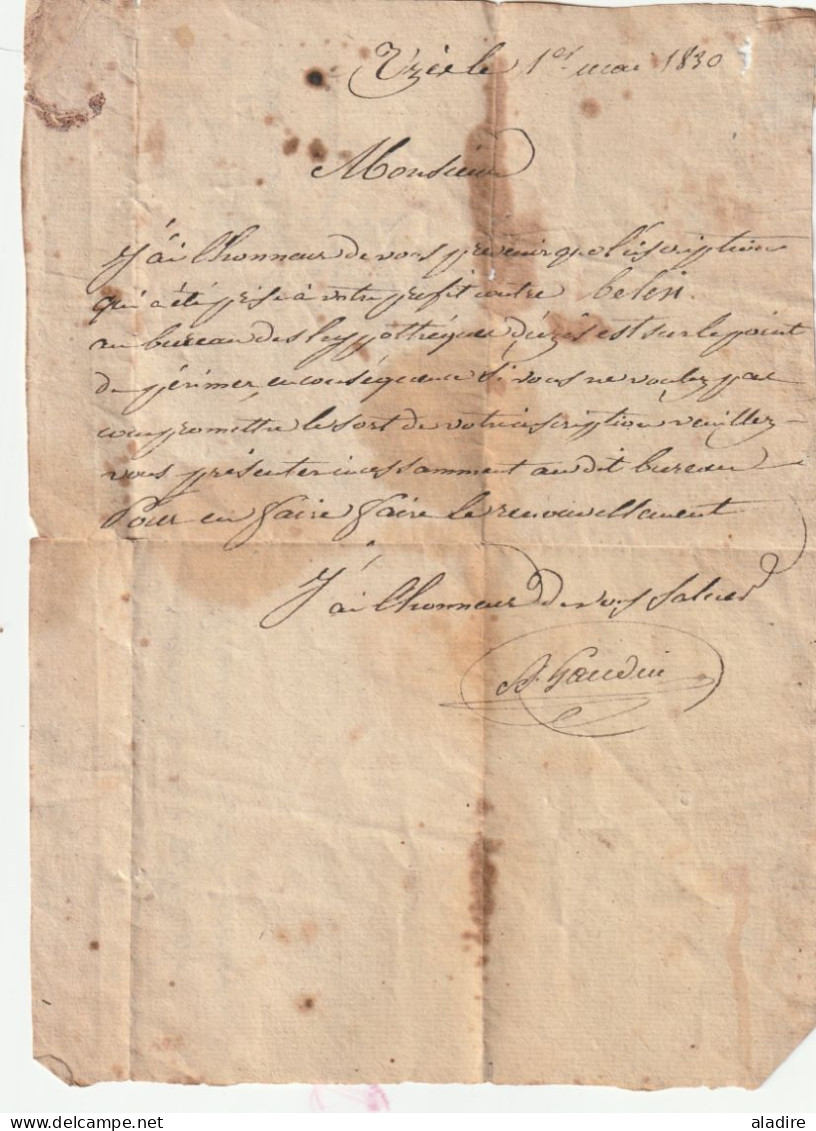 Uzès le 1er mai 1830
Monsieur
J'ai l'honneur de vous prévenir que l'inscription
qui a été prise à votre profit contre
au bureau des hypothèques d'uzès est sur le point
de périmer, en conséquence si vous ne voulez pas
compromettre le sort de votre inscription veuillez
vous présenter incessamment au dit bureau
Pour en faire faire le renouvellement
J'ai l'honneur de vous saluer
Gaudin
aladire